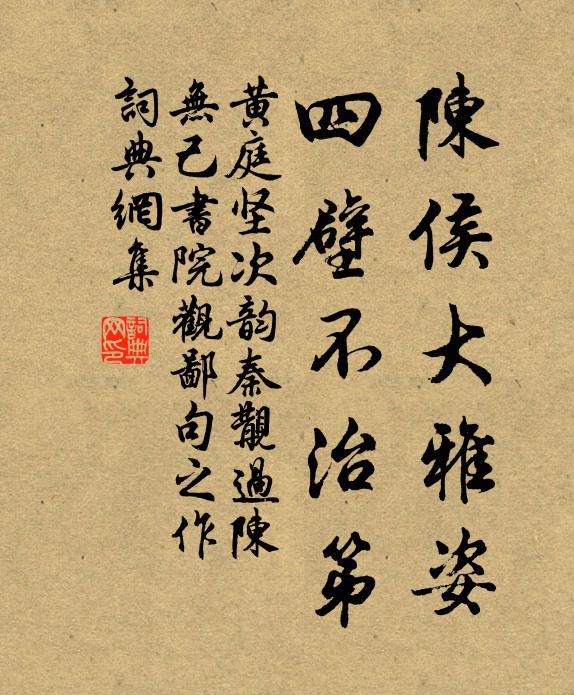 陳侯大雅姿
四壁不治第
黄庭坚次韵秦覯過陳
無己書院觀鄙句之作
詞典網集
詞典
网印